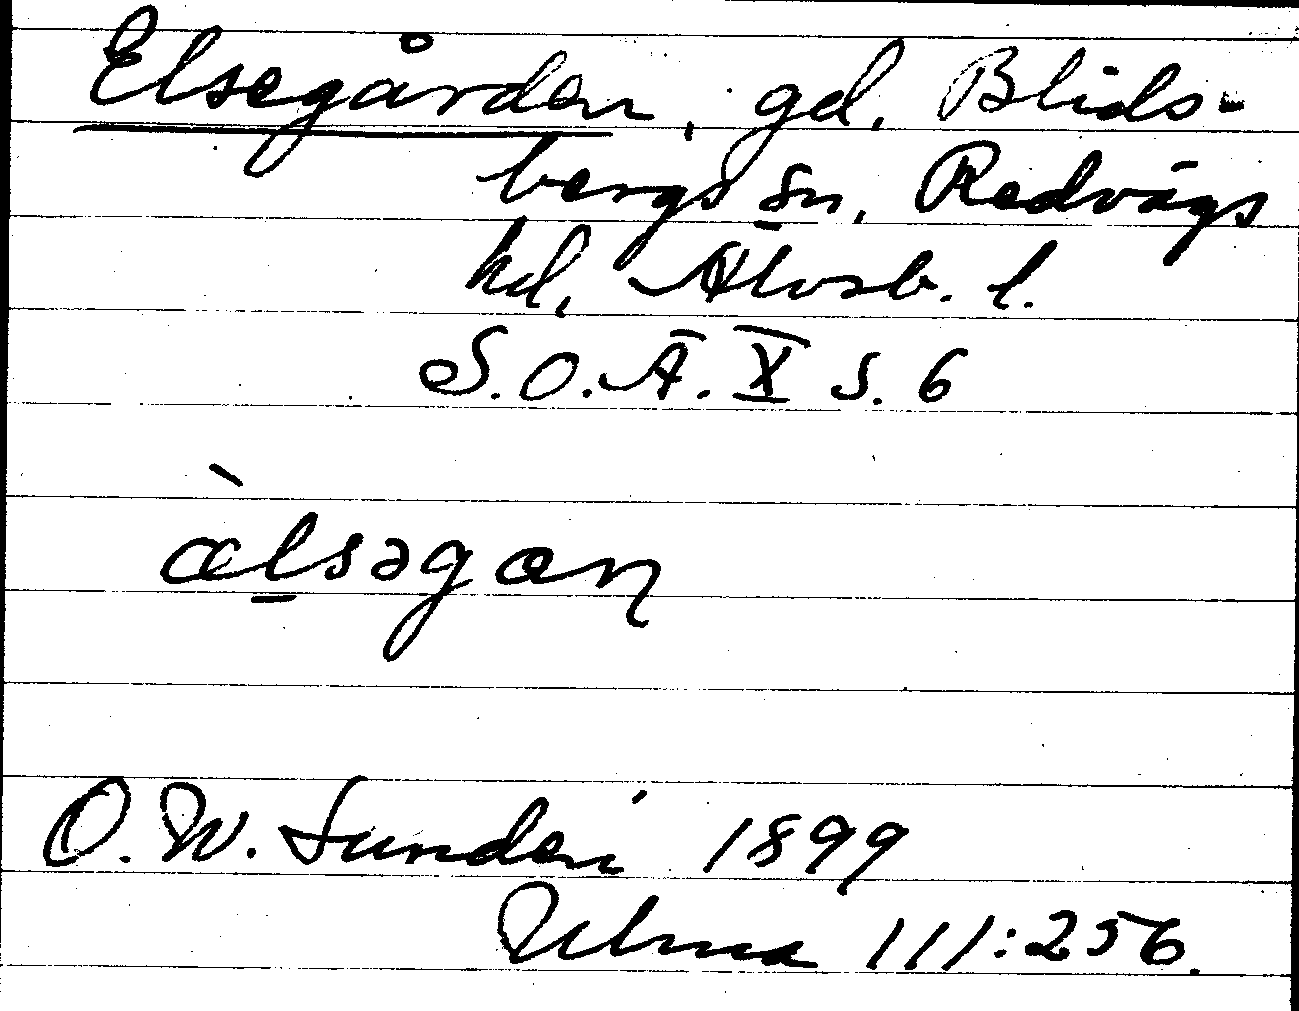 Elsegården, gd, Blids-
bergs sn, Redvägs
hd, Älvsb. l.
S.O.Ä. X s. 6
æ̀lsəgan
O. W. Sundén 1899
Uluma 111:256.